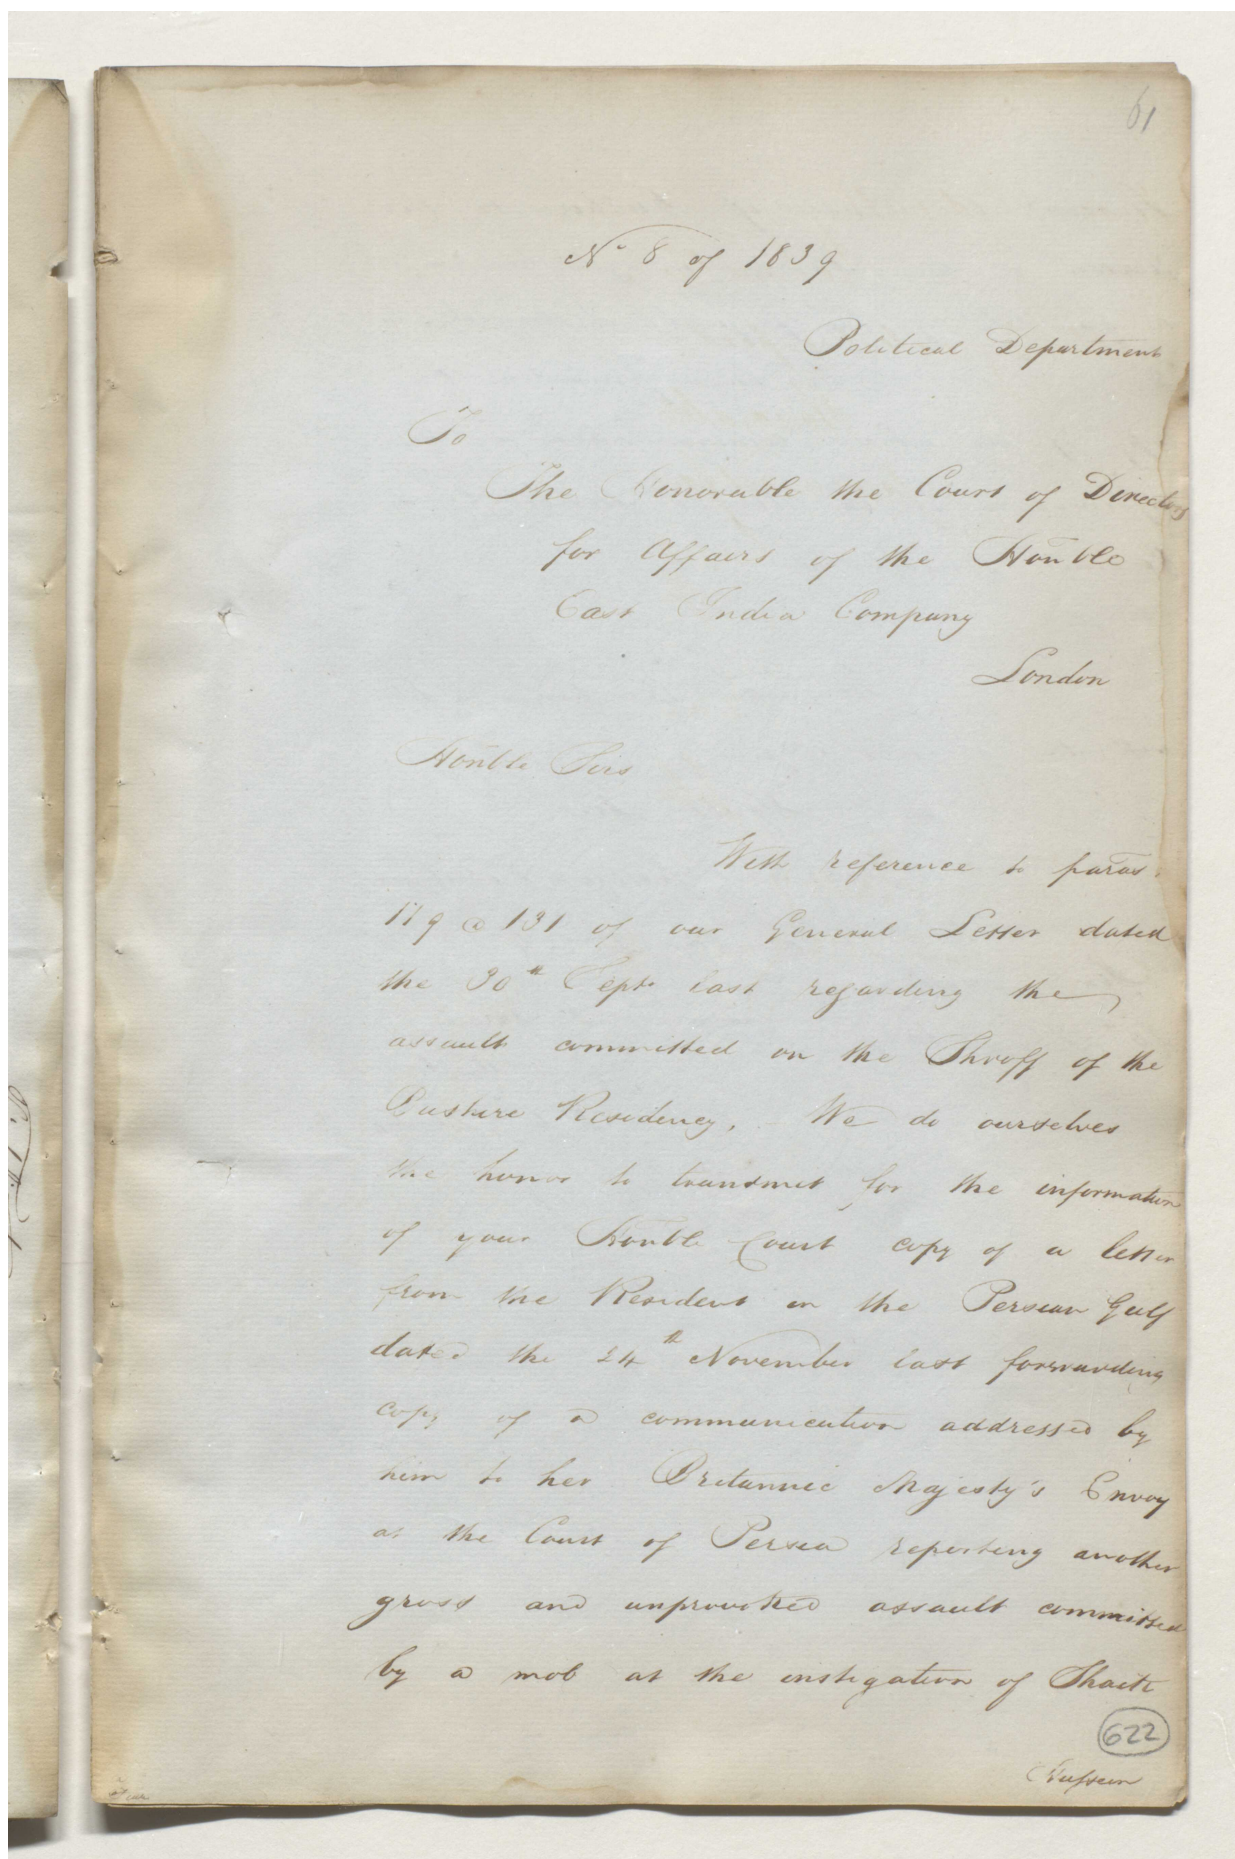 61
No 8 of 1839
Political Department
To
The Honorable the Court of Directors
for Affairs of the Honble
East India Company
London
Honble Sirs
With reference to paras
179 @ 131 of our General Letter dated
the 30th Sept last regarding the
assault committed on the Shroff of the
Bushire Residency, We do ourselves
the honor to transmit for the information
of your Honble Court copy of a letter
from the Resident in the Persian Gulf
dated the 24th November last forwarding
copy of a communication addressed by
him to her Britannic Majesty's Envoy
at the Court of Persia reporting another
gross and unprovoked assault committed
by a mob at the instigation of Shaik
622
Hussein